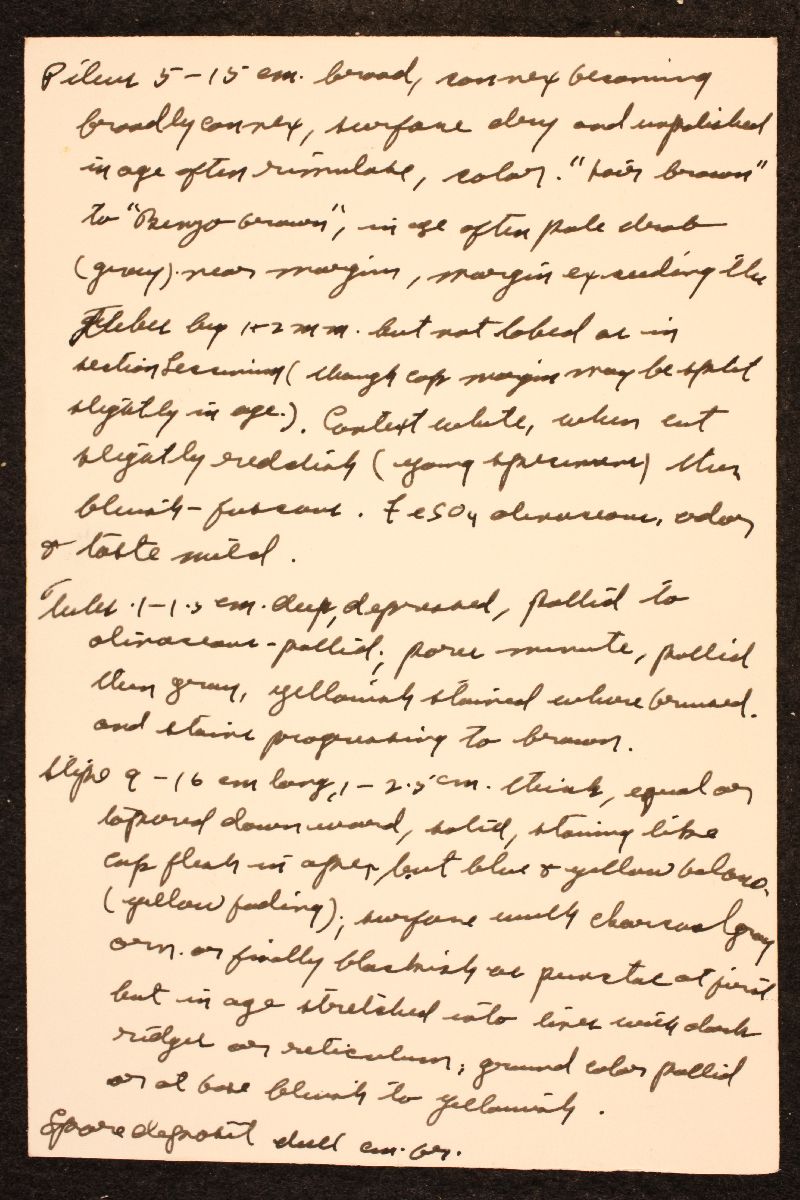 Pileus 5-15 cm. broad, convex becoming
broadly convex, surface dry and unpolished
in age often rimulose, color. "hair brown"
to "Benzo brown", in age often pale drab
(gray) near margin, margin exceeding the
tubes by 1-2 mm. but not lobed as in
section Leccinum (though cap margin may be split
slightly in age.). Context white, when cut
slightly reddish (young specimens) then
bluish-fuscous. FeSO4 olivaceous, odor
& taste mild.
Tubes .1-1.5 cm. deep, depressed, pallid to
olivaceous-pallid; pores minute, pallid
then gray, yellowish stained where bruised.
and stains progressing to brown.
Stipe 9-16 cm long, 1-2.5 cm. thick, equal or
tapered downward, solid, staining like
cap flesh in apex, but blue & yellow below.
(yellow fading); surface with charcoal gray
orn. or finally blackish as punctae at first
but in age stretched into lines with dark
ridges or reticulum; ground color pallid
or at base bluish to yellowish.
Spore deposit dull cm. br.